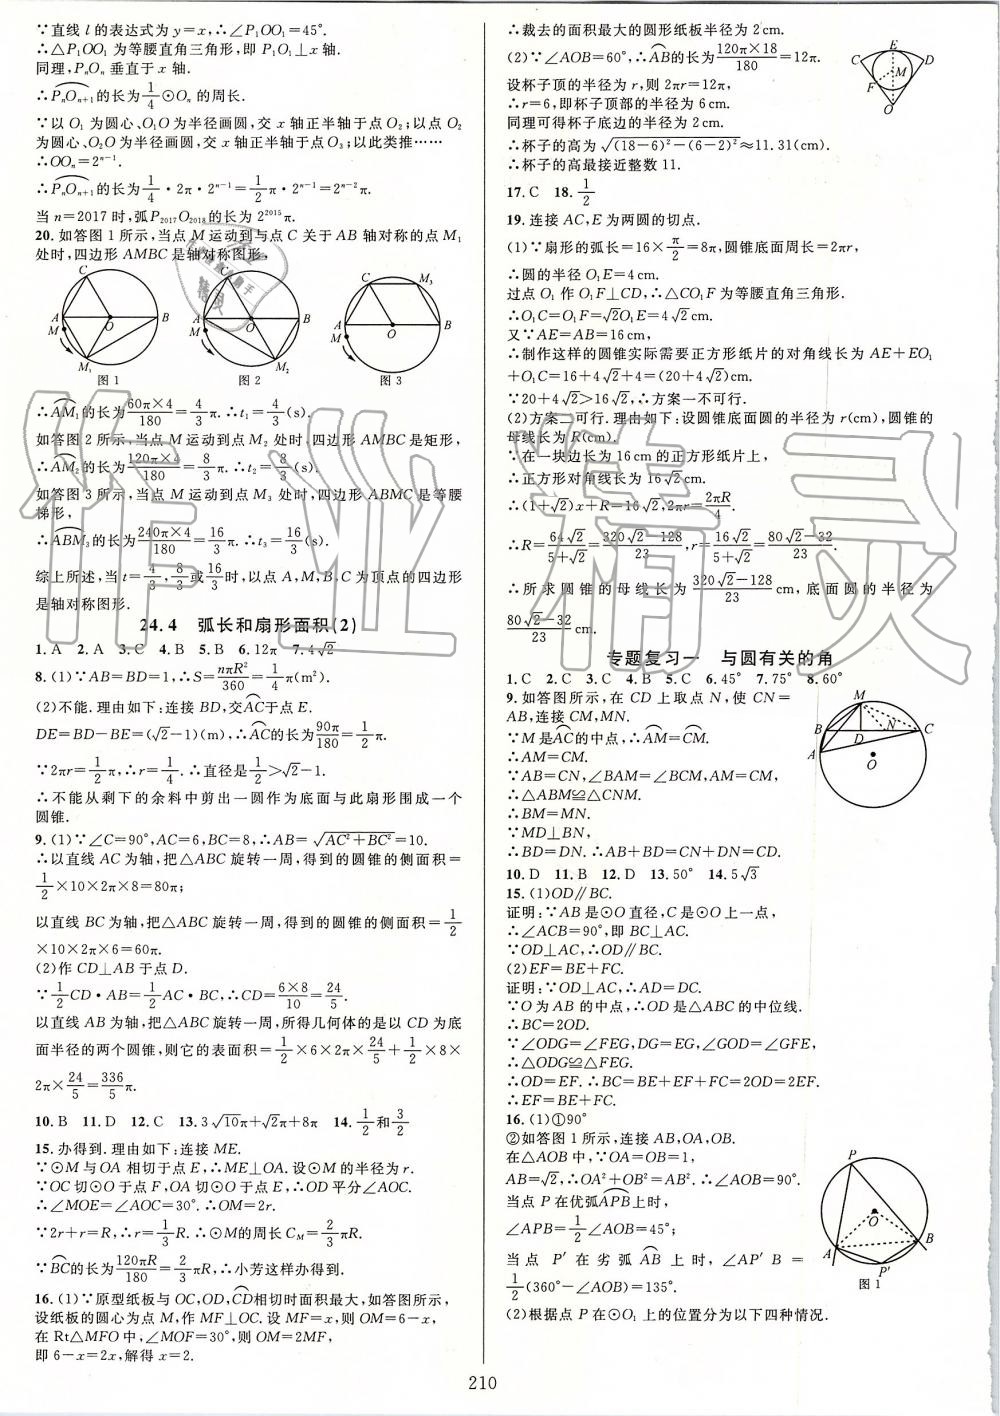 ∵直线 l 的表达式为 y=x,∴∠P₁OO₁=45°.
∴△P₁OO₁ 为等腰直角三角形,即 P₁O₁⊥x 轴.
同理,PₙOₙ 垂直于 x 轴.
∴PₙOₙ₊₁的长为1/4⊙Oₙ 的周长.
∵以 O₁ 为圆心、O₁O 为半径画圆,交 x 轴正半轴于点 O₂;以点 O₂
为圆心、O₂O 为半径画圆,交 x 轴正半轴于点 O₃;以此类推……
∴OOₙ=2ⁿ⁻¹.
∴PₙOₙ₊₁的长为1/4·2π·2ⁿ⁻¹=1/2π×2ⁿ⁻¹=2ⁿ⁻²π.
当 n=2017 时,弧P₂₀₁₇O₂₀₁₈的长为 2²⁰¹⁵π.
20.如答图 1 所示,当点 M 运动到与点 C 关于 AB 轴对称的点 M₁
处时,四边形 AMBC 是轴对称图形,
C A O B M M₁ 图 1
C A O B M M₂ 图 2
C M₃ A O B M 图 3
∴AM₁的长为60π×4/180=4/3π.∴t₁=4/3(s).
如答图 2 所示,当点 M 运动到点 M₂ 处时,四边形 AMBC 是矩形,
∴AM₂的长为120π×4/180=8/3π.∴t₂=8/3(s).
如答图 3 所示,当点 M 运动到点 M₃ 处时,四边形 ABMC 是等腰
梯形,
∴ABM₃的长为240π×4/180=16/3π.∴t₃=16/3(s).
综上所述,当 t=4/3,8/3或16/3时,以点 A,M,B,C 为顶点的四边形
是轴对称图形.
24.4 弧长和扇形面积(2)
1.A 2.A 3.C 4.B 5.B 6.12π 7.4√2
8.(1)∵AB=BD=1,∴S=nπR²/360=1/4π(m²).
(2)不能.理由如下:连接 BD,交AC于点 E.
DE=BD-BE=(√2-1)(m),∴AC的长为90π/180=1/2π.
∵2πr=1/2π,∴r=1/4.∴直径是1/2>√2-1.
∴不能从剩下的余料中剪出一圆作为底面与此扇形围成一个
圆锥.
9.(1)∵∠C=90°,AC=6,BC=8,∴AB=√(AC²+BC²)=10.
∴以直线 AC 为轴,把△ABC 旋转一周,得到的圆锥的侧面积=
1/2×10×2π×8=80π;
以直线 BC 为轴,把△ABC 旋转一周,得到的圆锥的侧面积=1/2
×10×2π×6=60π.
(2)作 CD⊥AB 于点 D.
∵1/2CD·AB=1/2AC·BC,∴CD=6×8/10=24/5.
以直线 AB 为轴,把△ABC 旋转一周,所得几何体的是以 CD 为底
面半径的两个圆锥,则它的表面积=1/2×6×2π×24/5+1/2×8×
2π×24/5=336/5π.
10.B 11.D 12.C 13.3√10π+√2π+8π 14.1/2和3/2
15.办得到.理由如下:连接 ME.
∵⊙M 与 OA 相切于点 E,∴ME⊥OA.设⊙M 的半径为 r.
∵OC 切⊙O 于点 F,OA 切⊙O 于点 E,∴OD 平分∠AOC.
∴∠MOE=∠AOC=30°.∴OM=2r.
∵2r+r=R,∴r=1/3R.∴⊙M 的周长 C_M=2/3πR.
∵BC的长为120πR/180=2/3πR,∴小芳这样办得到.
16.(1)∵原型纸板与 OC,OD,CD相切时面积最大,如答图所示,
设纸板的圆心为点 M,作 MF⊥OC.设 MF=x,则 OM=6-x,
在 Rt△MFO 中,∠MOF=30°,则 OM=2MF,
即 6-x=2x,解得 x=2.
∴裁去的面积最大的圆形纸板半径为 2 cm.
(2)∵∠AOB=60°,∴AB的长为120π×18/180=12π.
设杯子顶的半径为 r,则 2πr=12π,
∴r=6,即杯子顶部的半径为 6 cm.
同理可得杯子底边的半径为 2 cm.
∴杯子的高为√((18-6)²-(6-2)²)≈11.31(cm).
∴杯子的高最接近整数 11.
C E D M F O
17.C 18.1/2
19.连接 AC,E 为两圆的切点.
(1)∵扇形的弧长=16×π/2=8π,圆锥底面周长=2πr,
∴圆的半径 O₁E=4 cm.
过点 O₁ 作 O₁F⊥CD,∴△CO₁F 为等腰直角三角形.
∴O₁C=O₁F=√2O₁E=4√2 cm.
又∵AE=AB=16 cm,
∴制作这样的圆锥实际需要正方形纸片的对角线长为 AE+EO₁
+O₁C=16+4√2+4=(20+4√2)cm.
∵20+4√2>16√2,∴方案一不可行.
(2)方案二可行.理由如下:设圆锥底面圆的半径为 r(cm),圆锥的
母线长为 R(cm).
∵在一块边长为 16 cm 的正方形纸片上,
∴正方形对角线长为 16√2 cm.
∴(1+√2)x+R=16√2,2πr=2πR/4.
∴R=64√2/(5+√2)=(320√2-128)/23,r=16√2/(5+√2)=(80√2-32)/23.
∴所求圆锥的母线长为(320√2-128)/23 cm,底面圆的半径为
(80√2-32)/23 cm.
专题复习一 与圆有关的角
1.C 2.C 3.C 4.B 5.C 6.45° 7.75° 8.60°
9.如答图所示,在 CD 上取点 N,使 CN=
AB,连接 CM,MN.
∵M 是AC的中点,∴AM=CM.
∴AM=CM.
∵AB=CN,∠BAM=∠BCM,AM=CM,
∴△ABM≌△CNM.
∴BM=MN.
∵MD⊥BN,
∴BD=DN.∴AB+BD=CN+DN=CD.
M B D N C A O
10.D 11.B 12.D 13.50° 14.5√3
15.(1)OD∥BC.
证明:∵AB 是⊙O 直径,C 是⊙O 上一点,
∴∠ACB=90°,即 BC⊥AC.
∵OD⊥AC,∴OD∥BC.
(2)EF=BE+FC.
证明:∵OD⊥AC,∴AD=DC.
∵O 为 AB 的中点,∴OD 是△ABC 的中位线.
∴BC=2OD.
∵∠ODG=∠FEG,DG=EG,∠GOF=∠GFE,
∴△ODG≌△FEG.
∴OD=EF.∴BC=BE+EF+FC=2OD=2EF.
∴EF=BE+FC.
16.(1)①90°
②如答图 1 所示,连接 AB,OA,OB.
在△AOB 中,∵OA=OB=1,
AB=√2,∴OA²+OB²=AB².∴∠AOB=90°.
当点 P 在优弧APB上时,
∠APB=1/2∠AOB=45°;
当点 P′ 在劣弧 AB 上时,∠AP′B=
1/2(360°-∠AOB)=135°.
P O A B P′ 图 1
(2)根据点 P 在⊙O₁ 上的位置分为以下四种情况.
210
作业精灵